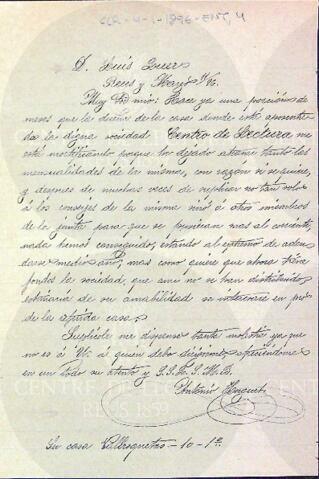 CLR-4-1-1896-ENT, 4
D. Luis Quer
Reus y Mayo
Muy Sr mio: Hace ya una porción de
meses que la dueña de la casa donde está aposenta-
da la digna sociedad Centro de Lectura, me
está mortificando porque ha dejado atrasar tanto las
mensualidades de la misma, con razón si se quiere,
y despues de muchas veces de suplicar no tan solo
á los consejes de la misma sinó á otros miembros
de la junta para que se pusieran mas al corriente,
nada hemos conseguido, estando al extremo de adeu-
darse medio año, mas como quiere que ahora tiene
fondos la sociedad, que aun no se han distribuido,
estimaria de su amabilidad se interesase en pró
de la casa.
Suplícole me dispense tanta molestia ya que
no es á V. á quien debo dirijirme, ofreciéndome
en un todo su atento y S.S.Q.B.S.M.
Antonio Huguet
CENTRE DE
REUS 1859
Su casa Vallroquetas - 10 - 1º